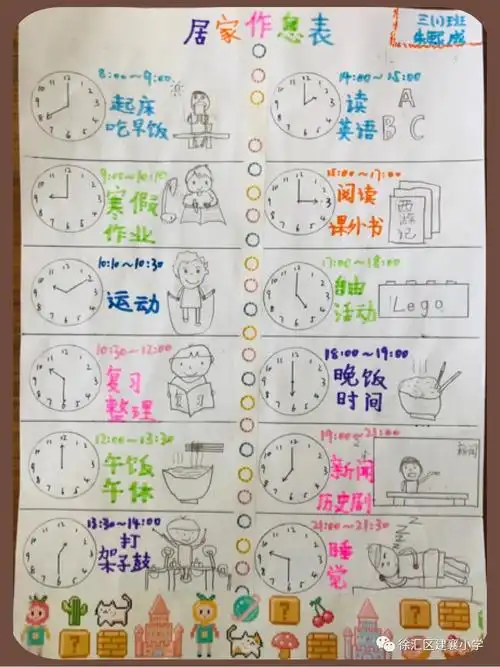 居家作息表
三(1)班
8:00~9:00
起床
吃早饭
9:00~10:10
寒假
作业
10:10~10:30
运动
10:30~12:00
复习
整理
复习
12:00~13:30
午饭
午休
13:30~14:00
打
架子鼓
14:00~15:00
读
英语
A
B C
15:00~17:00
阅读
课外书
西游记
17:00~18:00
自由
活动
Lego
18:00~19:00
晚饭
时间
19:00~21:00
新闻
历史剧
新闻
21:00~21:30
睡
觉
Z Z Z
徐汇区建襄小学